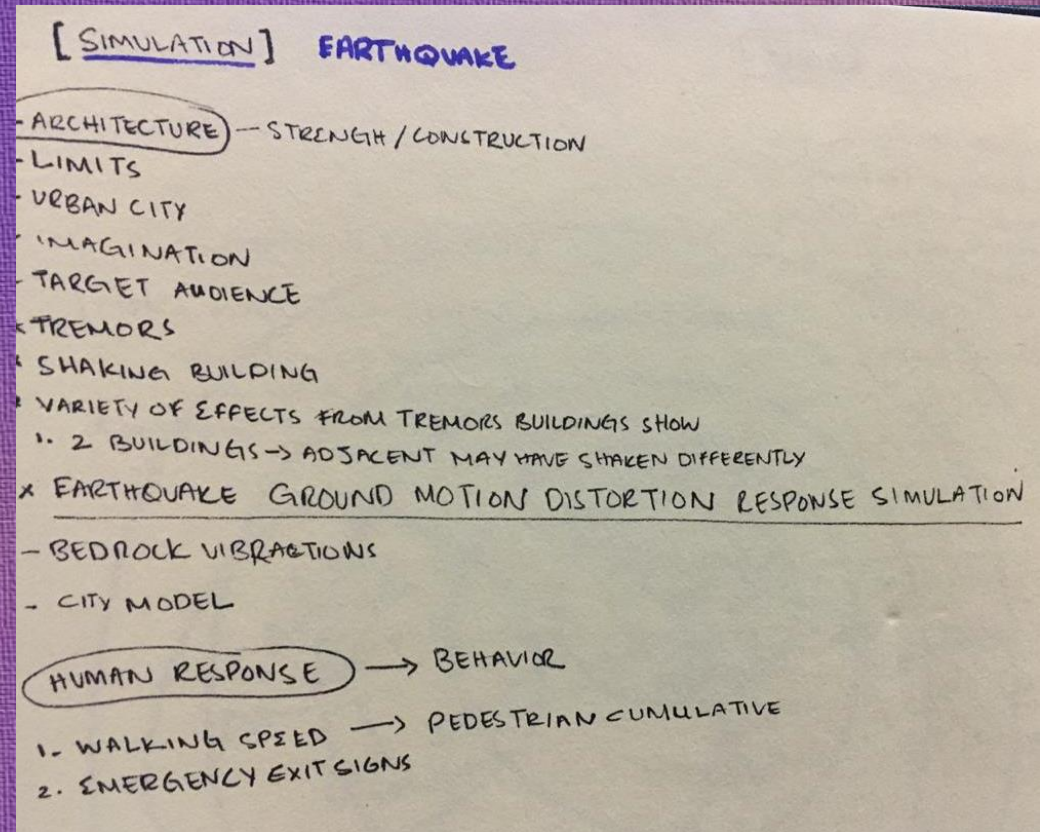 [SIMULATION] EARTHQUAKE
- ARCHITECTURE - STRENGH / CONSTRUCTION
- LIMITS
- URBAN CITY
- IMAGINATION
- TARGET AUDIENCE
x TREMORS
* SHAKING BUILDING
* VARIETY OF EFFECTS FROM TREMORS BUILDINGS SHOW
1. 2 BUILDINGS → ADJACENT MAY HAVE SHAKEN DIFFERENTLY
x EARTHQUAKE GROUND MOTION DISTORTION RESPONSE SIMULATION
- BEDROCK VIBRACTIONS
- CITY MODEL
HUMAN RESPONSE → BEHAVIOR
1. WALKING SPEED → PEDESTRIAN CUMULATIVE
2. EMERGENCY EXIT SIGNS